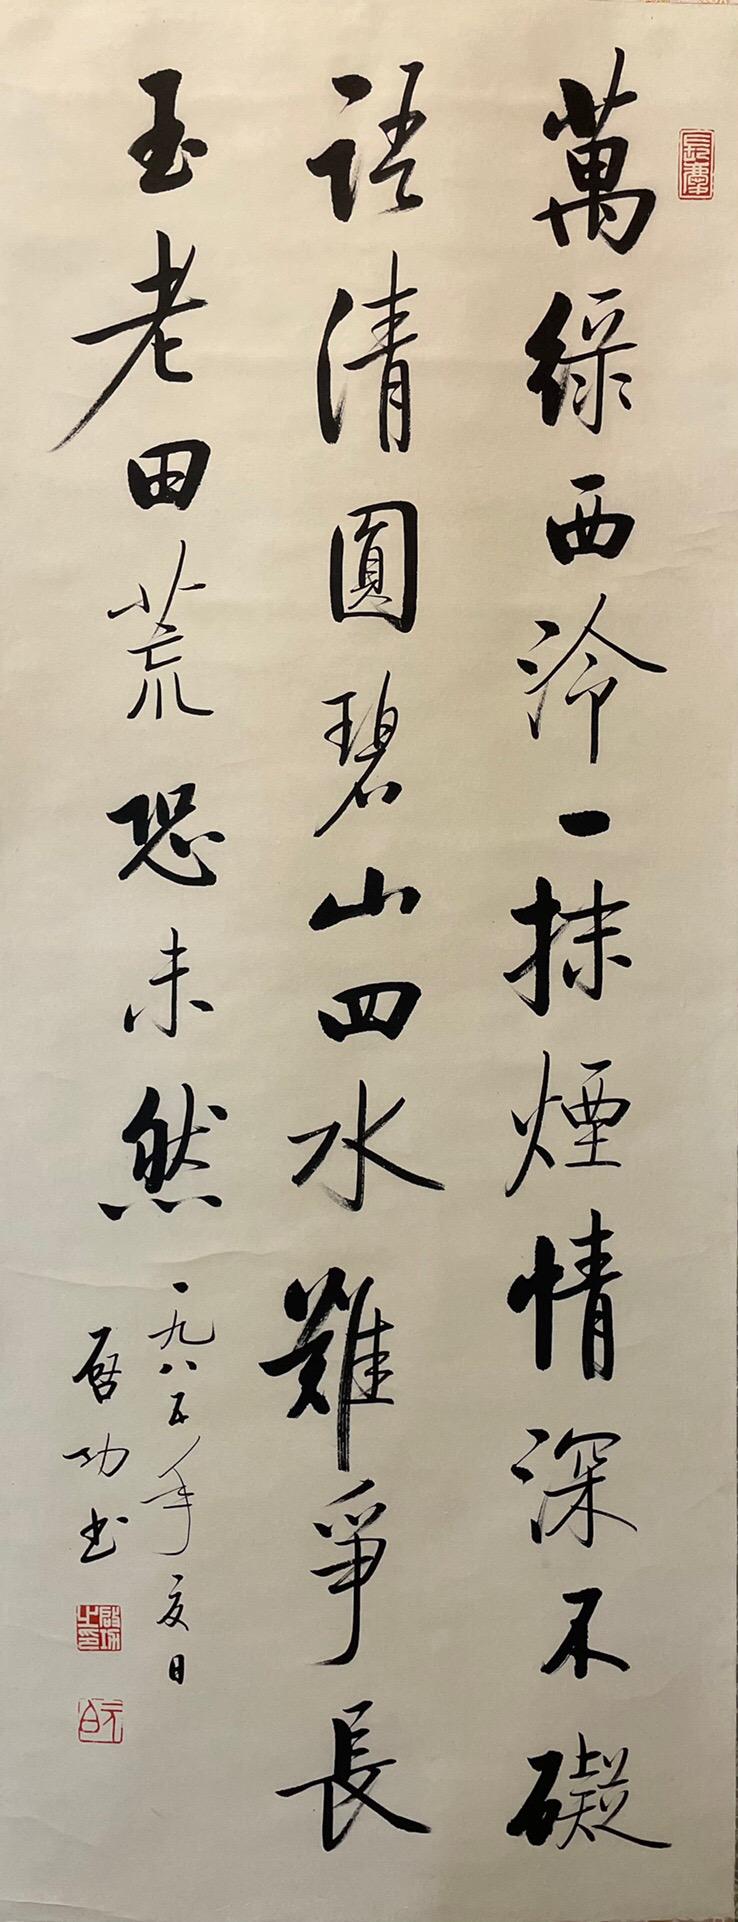 萬綠西泠一抹煙情深不礙
語清圓碧山四水難爭長
玉老田荒恐未然
一九八五年夏日
啓功書
啟功之印
元白